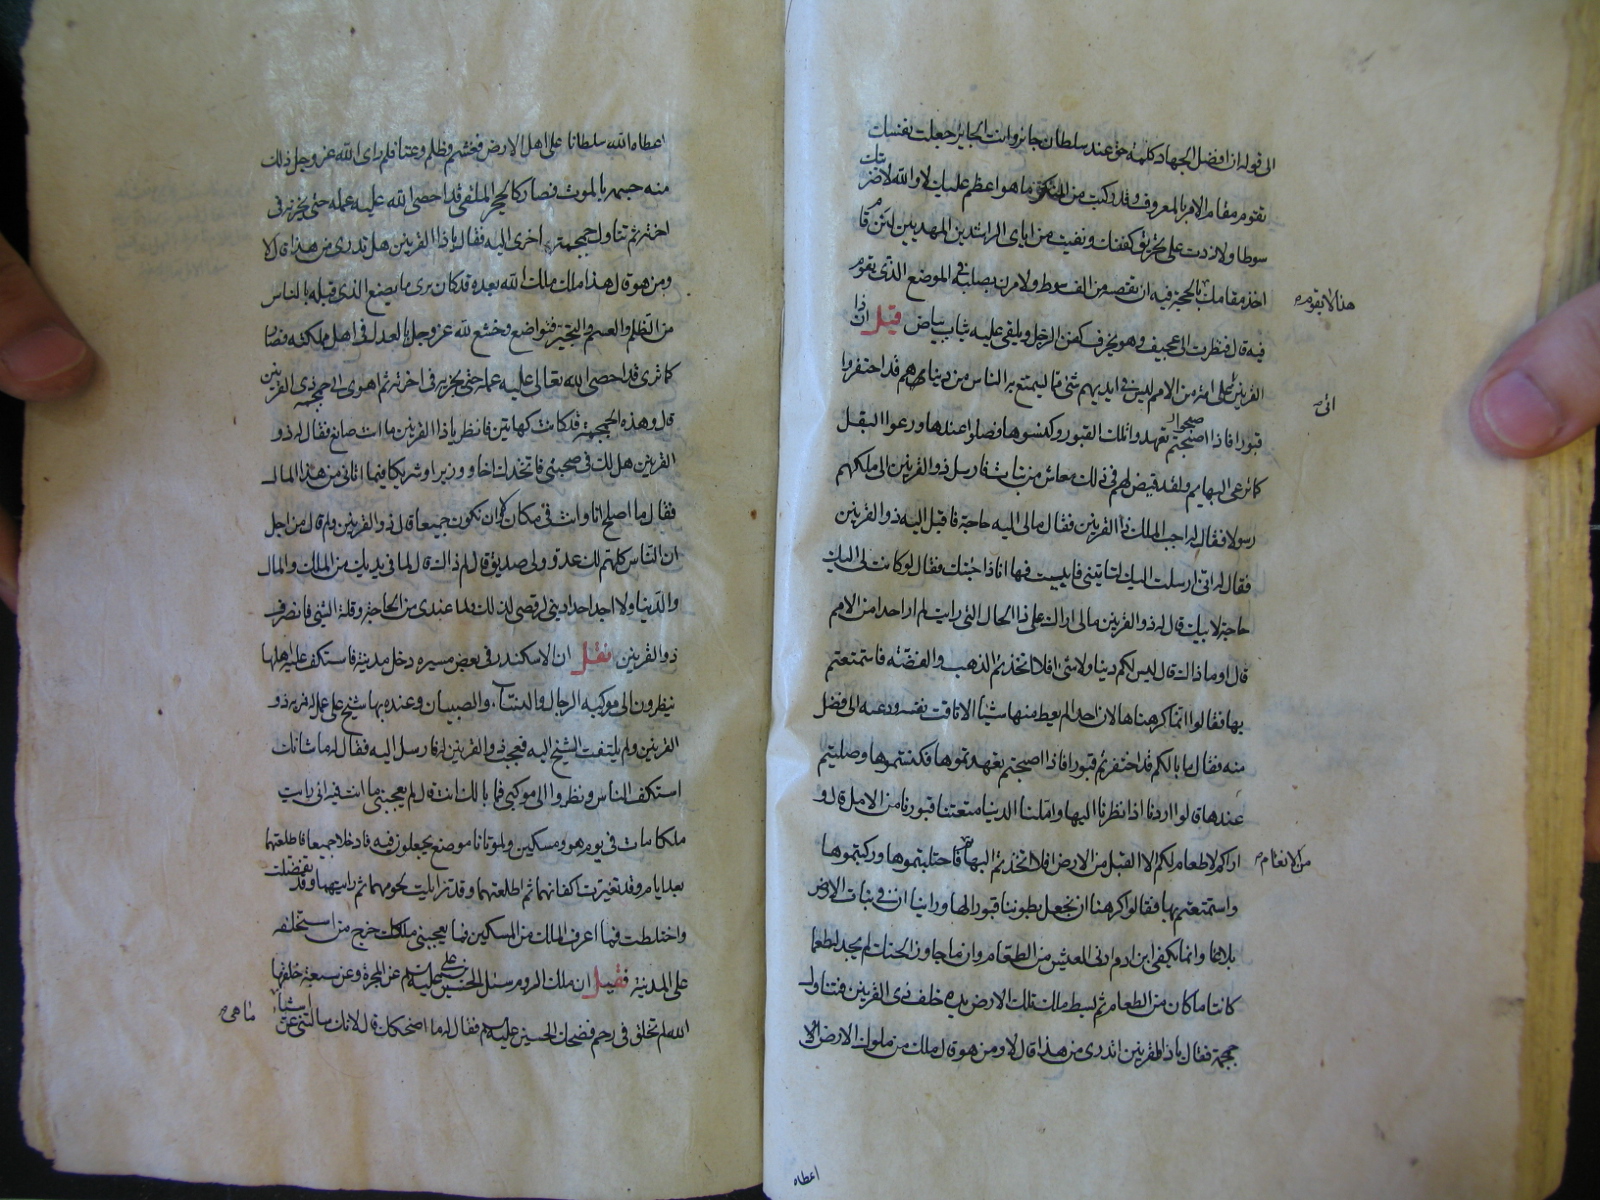 الى قوله ان افضل الجهاد كلمة حق عند سلطان جائر وانت الجائر جعلت نفسك
تقوم مقام الامر بالمعروف وقد ركبت من المنكر ما هو اعظم عليك لا والله لاضربنك
سوطا ولازدت على تخريق كفنك ونفيت من اباى الراشدين المهديين لئن قام
اخذ مقامك بالحجة فيه ان نقصه من الف سوط ولامرن بصلبه فى الموضع الذى يقوم
هذا لا يقومه
فيه قال فنظرت الى عجيف وهو يخرق كفن الرجل ويلقى عليه ثياب بياض قيل ان ذا
القرنين اتى على امة من الامم ليس فى ايديهم شئ مما يستمتع به الناس من دنياهم قد احتفروا
اتى
قبورا فاذا اصبحتم تعهدوا تلك القبور وكنسوها وصلوا عندها ورعوا البقل
كما ترعى البهايم ولقد قيض لهم فى ذلك معاش من نبات فارسل ذو القرنين الى ملكهم
رسولا فقال له اجب الملك ذا القرنين فقال مالى اليه حاجة فاقبل اليه ذو القرنين
فقال له انى ارسلت اليك لتاتينى فابيت فها انا ذا جئتك فقال لو كانت لى اليك
حاجة لاتيتك قال له ذو القرنين مالى اراك على ذا الحال التى رايت لم ار احدا من الامم
قال او ما ذاك قال ليس لكم دنيا ولا شئ افلا اتخذتم الذهب والفضة فاستمتعتم
بها فقالوا انما كرهناها لان احدا لم يعط منها شيئا الا تاقت نفسه ودعته الى افضل
منه فقال ما بالكم قد احتفرتم قبورا فاذا اصبحتم تعهدتموها فكنستموها وصليتم
عندها قالوا اردنا اذا نظرنا اليها واملنا الدنيا منعتنا قبورنا من الامل قال و
اراكم لا طعام لكم الا البقل من الارض افلا اتخذتم البهائم فاحتلبتموها وركبتموها
من الانعام
واستمتعتم بها فقالوا كرهنا ان نجعل بطوننا قبورا لها وراينا ان فى نبات الارض
بلاغا وانما يكفى ابن ادم ادنى العيش من الطعام وان ما جاوز الحنك لم يجد له طعما
كائنا ما كان من الطعام ثم بسط ملك تلك الارض يده خلف ذى القرنين فتناول
جمجمة فقال يا ذا القرنين اتدرى من هذا قال لا ومن هو قال ملك من ملوك الارض
اعطاه
اعطاه الله سلطانا على اهل الارض فغشم وظلم وعتا فلما راى الله عز وجل ذلك
منه حسمه بالموت فصار كالحجر الملقى قد احصى الله عليه عمله حتى يجزيه فى
اخرته ثم تناول جمجمة اخرى اليه فقال يا ذا القرنين هل تدرى من هذا قال لا
ومن هو قال هذا ملك ملك الله بعده قد كان يرى ما يصنع الذى قبله بالناس
من الظلم والغشم والتجبر فتواضع وخشع لله عز وجل بالعدل فى اهل مملكته فصار
كما ترى قد احصى الله تعالى عليه عمله حتى يجزيه فى اخرته ثم اهوى الى جمجمة ذى القرنين
قال وهذه الجمجمة قد كانت كهاتين فانظر يا ذا القرنين ما انت صانع فقال له ذو
القرنين هل لك فى صحبتى فاتخذك اخا ووزيرا وشريكا فيما اتانى من هذا المال
فقال ما اصلح انا وانت فى مكان ولا ان نكون جميعا قال ذو القرنين ولم قال من اجل
ان الناس كلهم لك عدو ولى صديق قال لم ذاك قال لما فى يديك من الملك والمال
والدنيا ولا اجد احدا يعادينى لرفضى لذلك ولما عندى من الحاجة وقلة الشئ فانصرف
ذو القرنين نقل ان الاسكندر فى بعض مسيره دخل مدينة فاستكف عليه اهلها
ينظرون الى موكبه الرجال والنساء والصبيان وعنده بها شيخ على عمل له فمر به ذو
القرنين ولم يلتفت الشيخ اليه فعجب ذو القرنين له فارسل اليه فقال له ما شانك
استكف الناس ونظروا الى موكبى فما بالك انت قال لم يعجبنى ما انت فيه انى رايت
ملكا مات فى يوم هو ومسكين ولموتانا موضع يجعلون فيه فادخلا جميعا فاطلعتهما
بعد ايام وقد تغيرت اكفانهما ثم اطلعتهما وقد تزايلت لحومهما ثم رايتهما وقد تفصلت
واختلطت فما اعرف الملك من المسكين فما يعجبنى ملكك خرج من استخلفه
على المدينة فقيل ان ملك الروم سئل الحسين بن على عليه السلم عن المجرة وعن سبعة اشياء خلقها
الله لم تخلق فى رحم فضحك الحسين عليه السلم فقال له ما اضحكك قال لانك سالتنى عن
ما هى